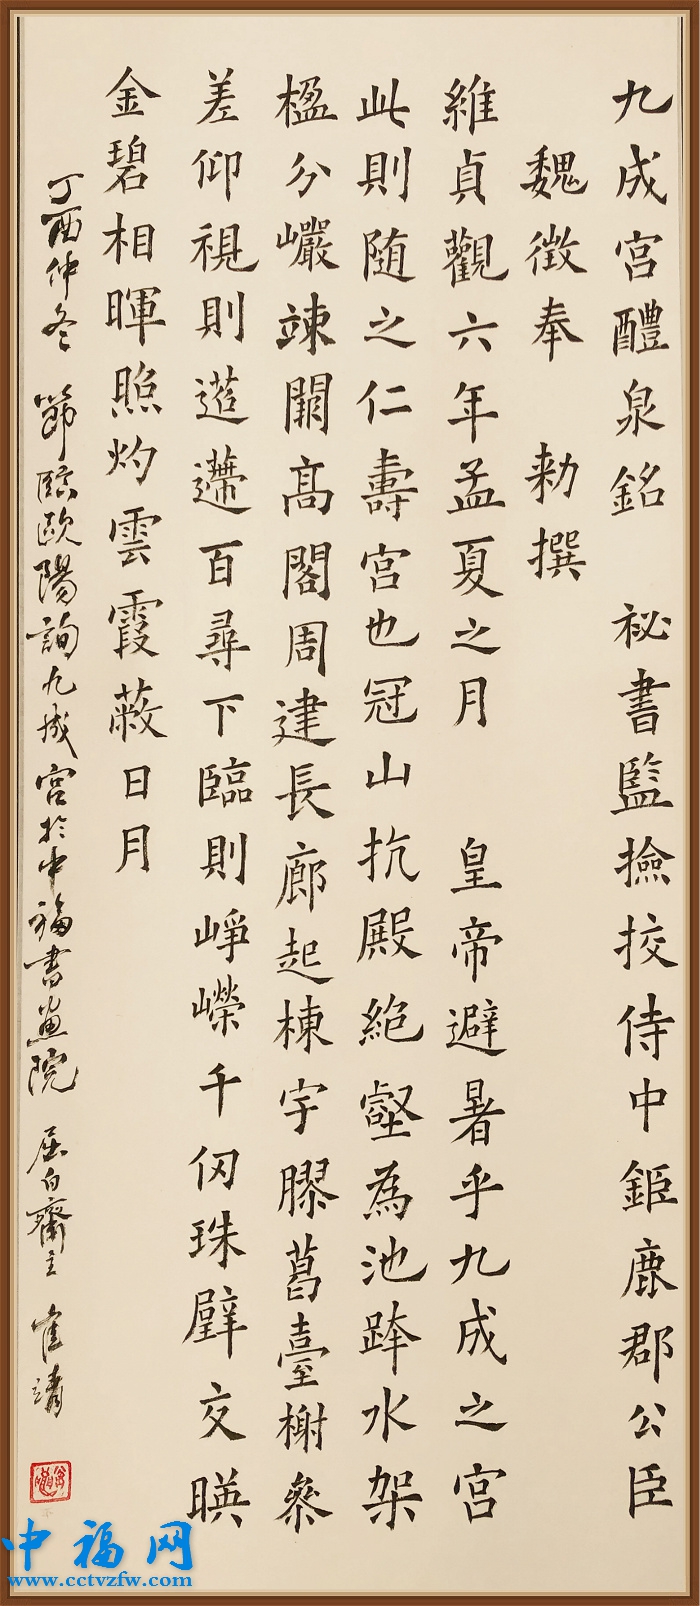 九成宮醴泉銘 祕書監撿挍侍中鉅鹿郡公臣
魏徵奉 勑撰
維貞觀六年孟夏之月 皇帝避暑乎九成之宮
此則随之仁壽宮也冠山抗殿絶壑為池跨水架
楹分巗竦闕高閣周建長廊起棟宇膠葛臺榭參
差仰視則迢遰百尋下臨則崢嶸千仞珠璧交暎
金碧相暉照灼雲霞蔽日月
丁酉仲冬 節臨歐陽詢九成宮於中福書畫院 屈白齋主 崔靖
中福网
www.cctvzfw.com